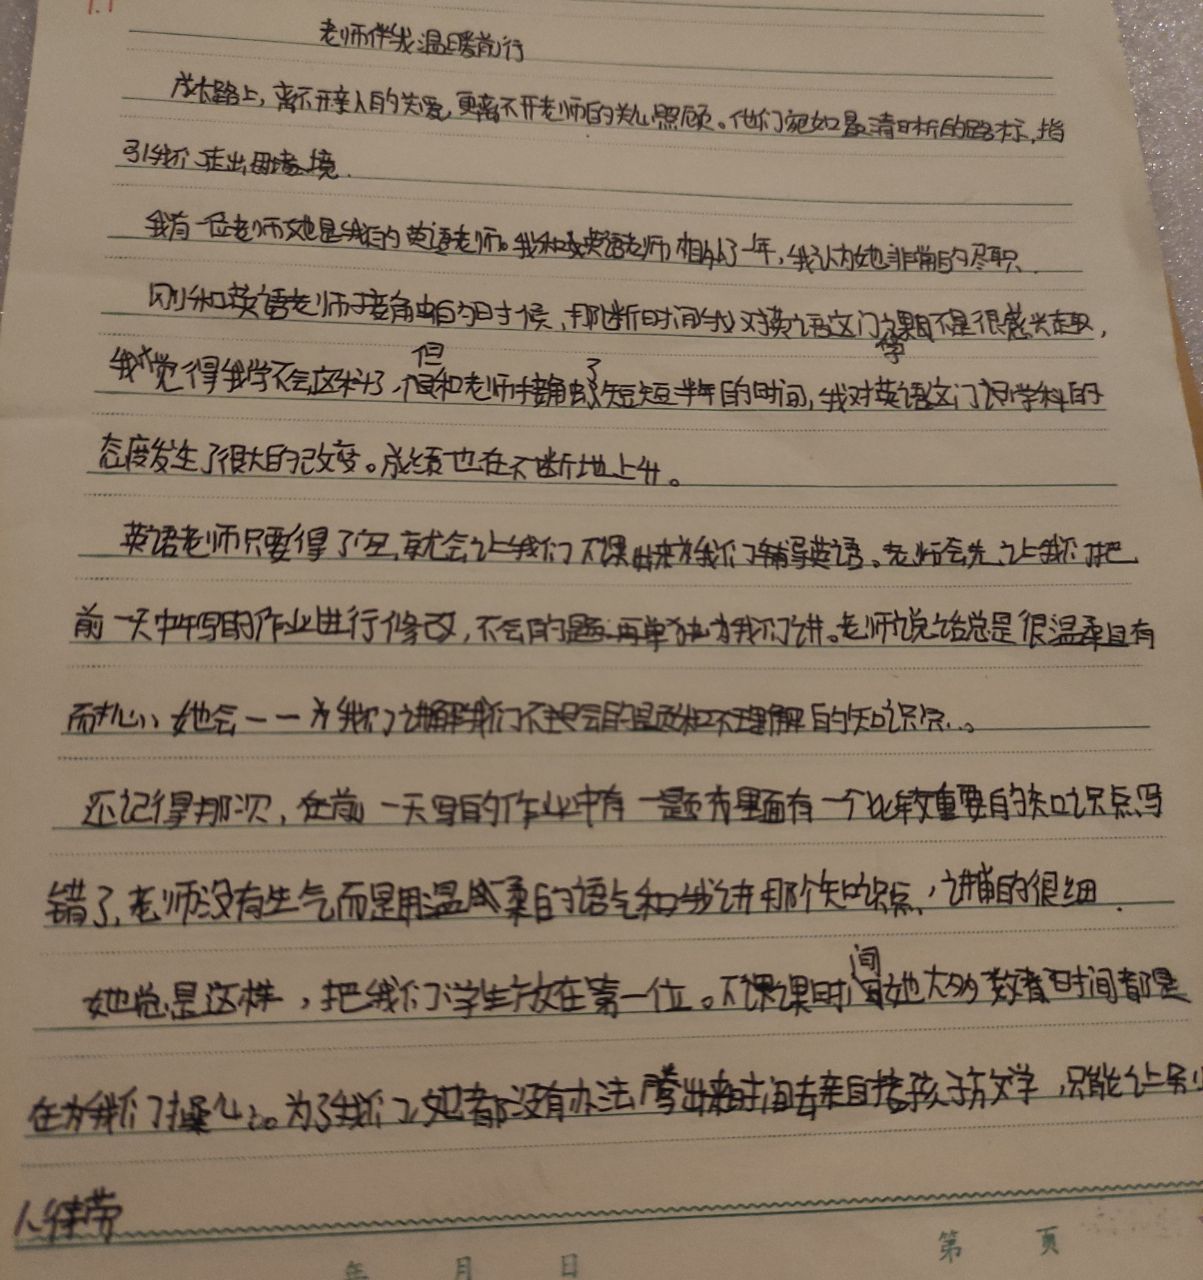 1.1
老师伴我温暖前行
成长路上，离不开亲人的关爱，更离不开老师的关心照顾。他们宛如最清晰的路标，指
引我们走出困境。
我有一位老师她是我们的英语老师。我和英语老师相处了一年，我认为她非常的尽职。
刚和英语老师接触的时候，那断时间我对英语这门课目不是很感兴趣，
学
我觉得我学不会这科了，但和老师接触了短短半年的时间，我对英语这门学科的
态度发生了很大的改变。成绩也在不断地上升。
英语老师只要得了空，就会让我们下课出来为我们辅导英语。老师会先让我们把
前一天中午写的作业进行修改，不会的题再单独为我们讲。老师说话总是很温柔且有
耐心，她会一一为我们讲解我们不会的题和不理解的知识点。
还记得那次，在前一天写的作业中有一题我里面有一个比较重要的知识点写
错了，老师没有生气而是用温柔的语气和我讲那个知识点，讲的很细。
她总是这样，把我们学生放在第一位。下课时间她大多数时间都是
在为我们操心。为了我们她都没有办法腾出来时间去亲自接孩子放学，只能让
人代劳
年 月 日
第 页